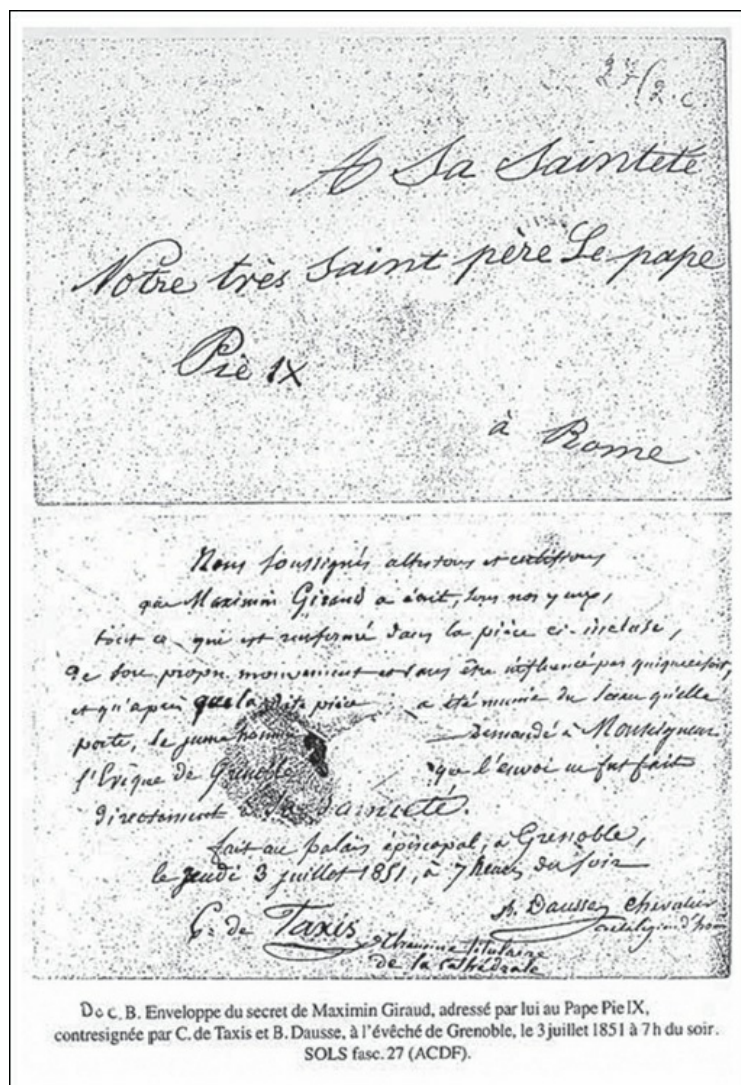 27/2.c.
A Sa Sainteté
Notre très Saint père Le pape
Pie IX
à Rome
Nous soussignés attestons et certifions
que Maximin Giraud a écrit, sous nos yeux,
tout ce qui est renfermé dans la pièce ci-incluse,
de son propre mouvement et sans être influencé par quique ce soit,
et qu'après que la dite pièce a été munie du sceau qu'elle
porte, le jeune homme demandé à Monseigneur
l'Evêque de Grenoble que l'envoi en fut fait
directement à Sa Sainteté.
fait au palais épiscopal, à Grenoble,
le jeudi 3 juillet 1851, à 7 heures du soir
C. de Taxis
chanoine titulaire
de la cathédrale
B. Dausse Chevalier
légion d'hon
Doc. B. Enveloppe du secret de Maximin Giraud, adressé par lui au Pape Pie IX,
contresignée par C. de Taxis et B. Dausse, à l'évêché de Grenoble, le 3 juillet 1851 à 7 h du soir.
SOLS fasc. 27 (ACDF).